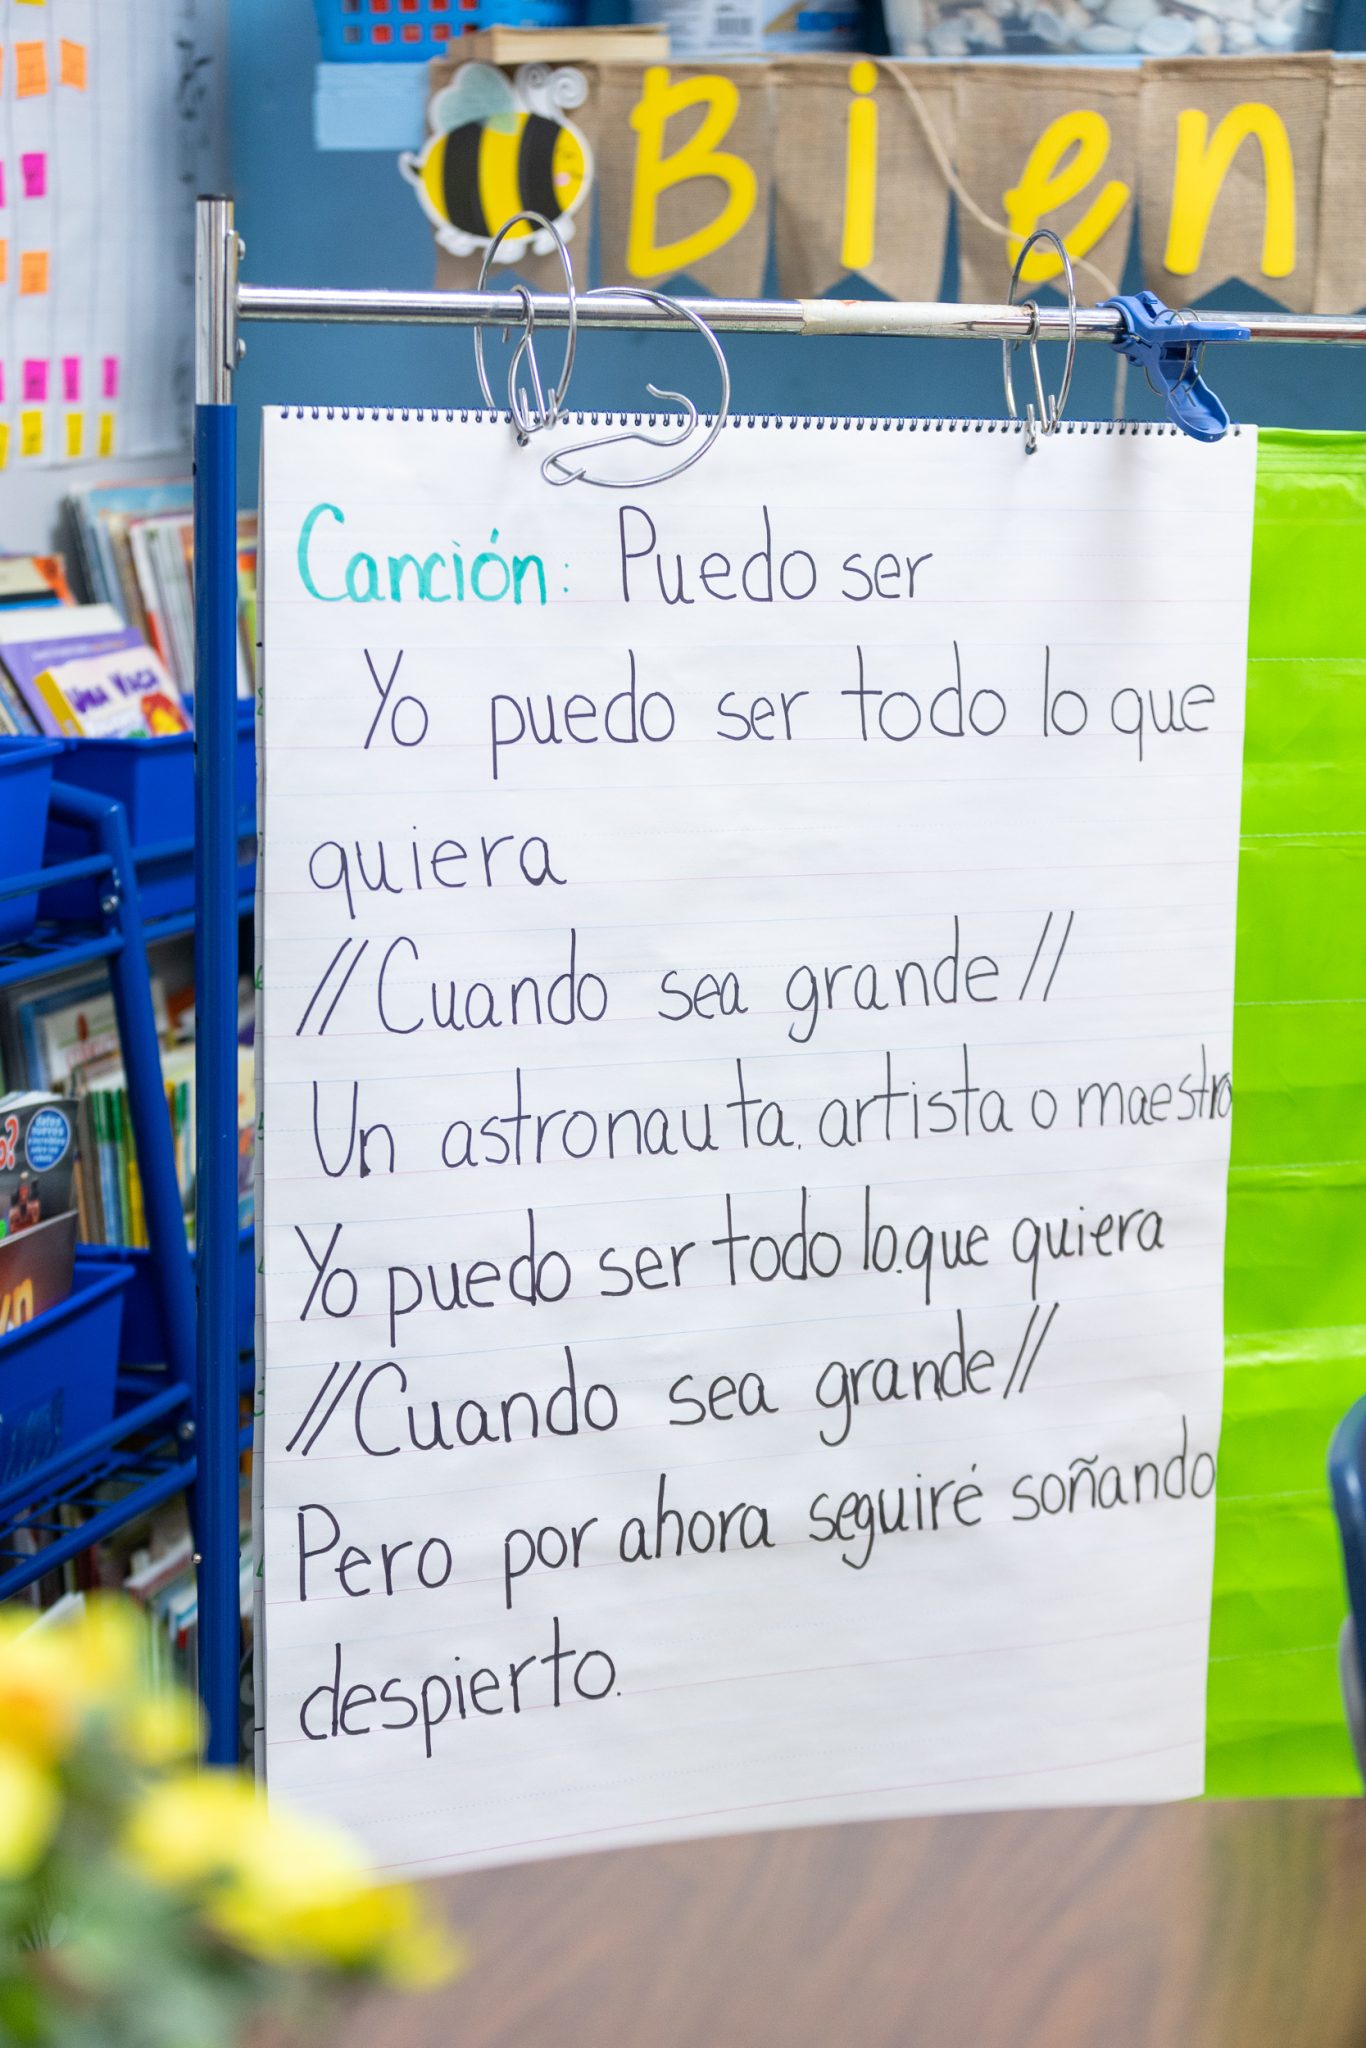 Bien
Canción: Puedo ser
Yo puedo ser todo lo que
quiera
//Cuando sea grande//
Un astronauta, artista o maestra
Yo puedo ser todo lo que quiera
//Cuando sea grande//
Pero por ahora seguiré soñando
despierto.
Una Vaca